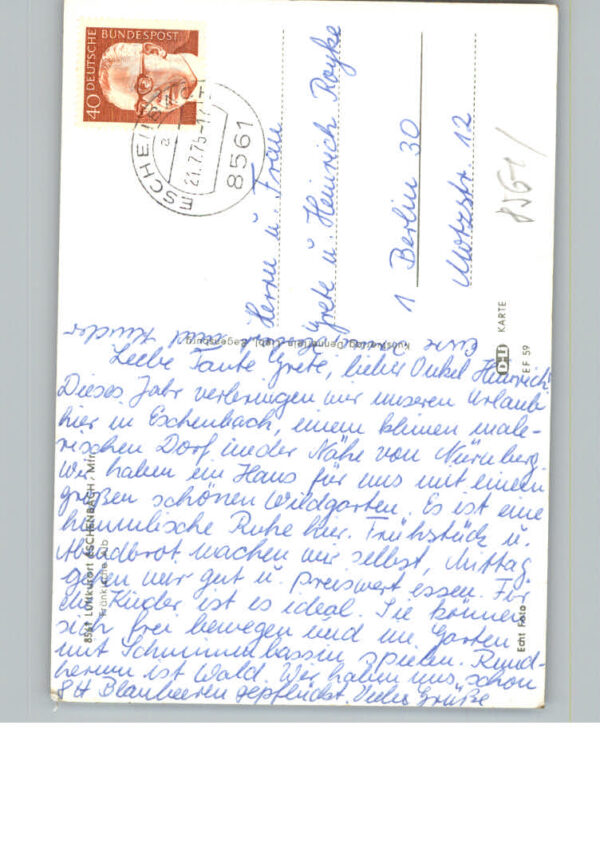 DEUTSCHE BUNDESPOST
40
8561
21.7.75-17
a
Herrn u. Frau
Grete u. Heinrich Royke
1 Berlin 30
Motzstr. 12
8561
KARTE
EF 59
Echt Foto
8561 Luftkurort ESCHENBACH / Mfr.
Fränkische Alb
Liebe Tante Grete, lieber Onkel Heinrich!
Dieses Jahr verbringen wir unseren Urlaub
hier in Eschenbach, einem kleinen male-
rischen Dorf in der Nähe von Nürnberg.
Wir haben ein Haus für uns mit einem
großen schönen Wildgarten. Es ist eine
himmlische Ruhe hier. Frühstück u.
Abendbrot machen wir selbst, Mittag
gehen wir gut u. preiswert essen. Für
die Kinder ist es ideal. Sie können
sich frei bewegen und im Garten
mit Schwimmbassin spielen. Rund-
herum ist Wald. Wir haben uns schon
8 H Blaubeeren gepflückt. Viele Grüße
Eure und Kinder